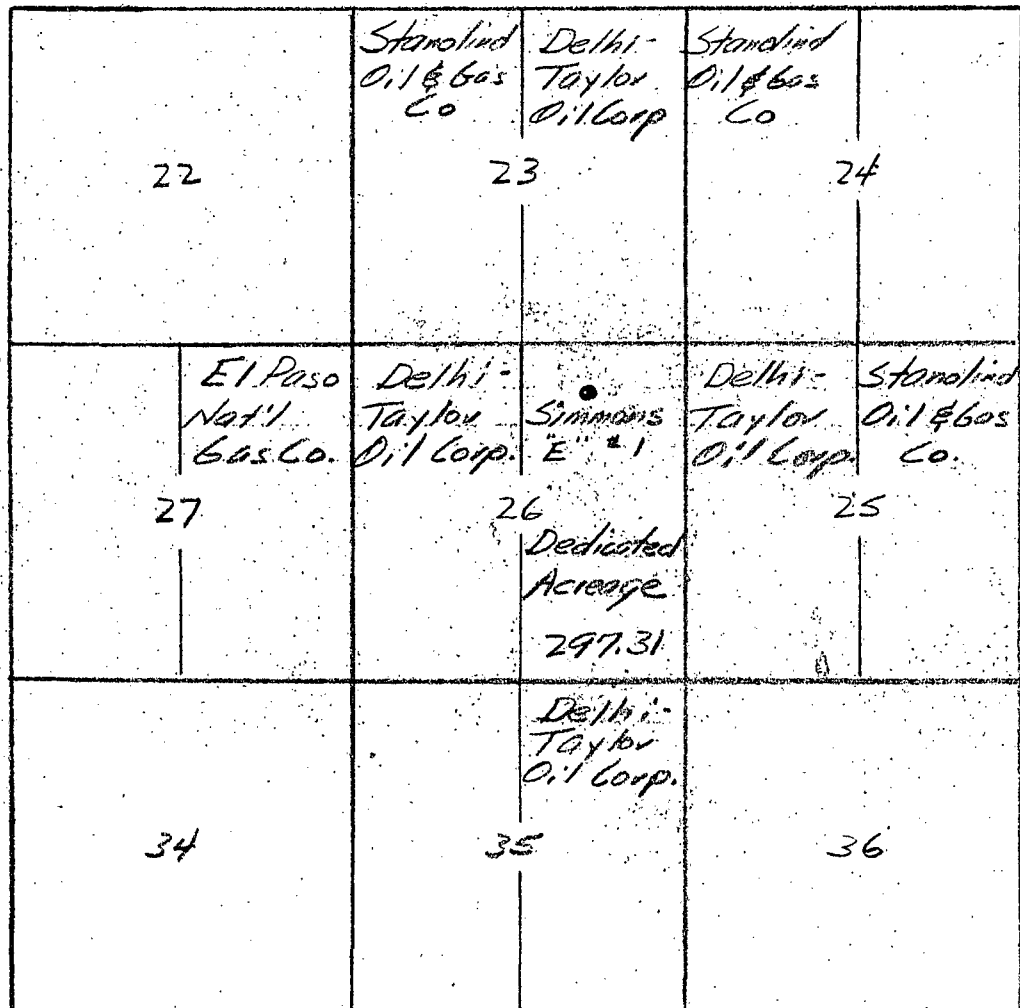 Stanolind
Oil & Gas
Co
Delhi-
Taylor
Oil Corp
Stanolind
Oil & Gas
Co
22
23
24
El Paso
Nat'l
Gas Co.
Delhi-
Taylor
Oil Corp.
Simmons
"E" #1
Delhi-
Taylor
Oil Corp.
Stanolind
Oil & Gas
Co.
27
26
25
Dedicated
Acreage
297.31
Delhi-
Taylor
Oil Corp.
34
35
36